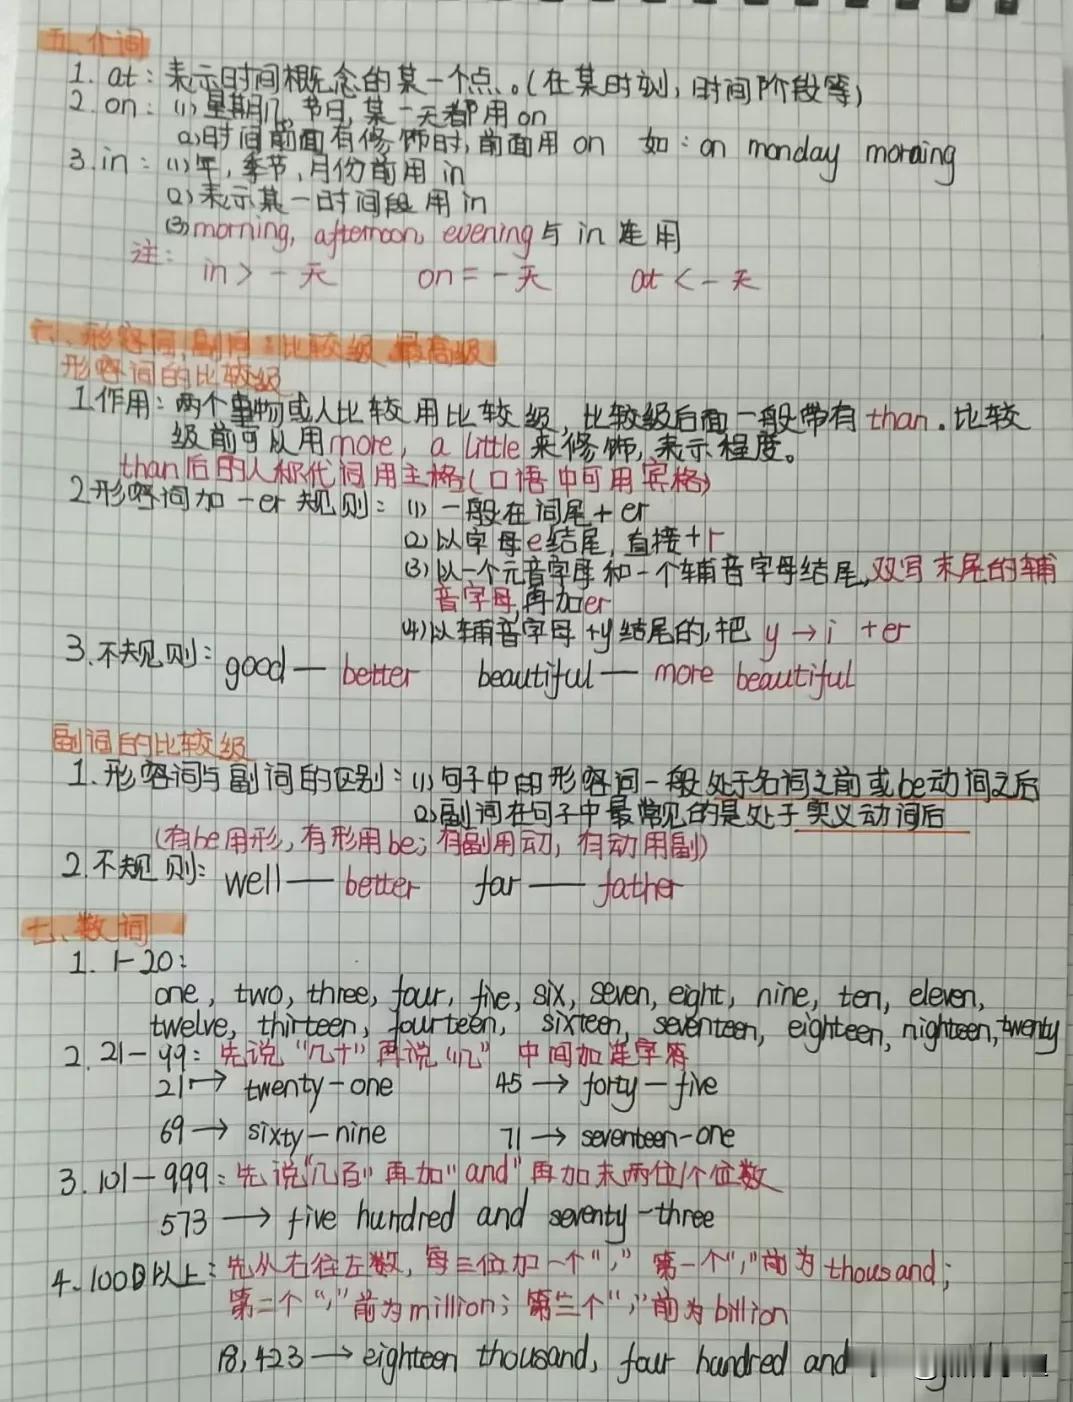 五、介词
1. at：表示时间概念的某一个点。(在某时刻，时间阶段等)
2. on：(1) 星期几，节日，某一天都用on
(2)时间前面有修饰时，前面用 on 如：on monday morning
3. in：(1)年，季节，月份前用 in
(2)表示某一时间段用in
(3)morning, afternoon, evening与 in 连用
注：
in > 一天 on = 一天 at < 一天
六、形容词,副词：比较级 最高级
形容词的比较级
1.作用：两个事物或人比较用比较级，比较级后面一般带有than．比较
级前可以用more，a little来修饰，表示程度。
than后的人称代词用主格(口语中可用宾格)
2.形容词加 -er 规则：(1) 一般在词尾+er
(2)以字母e结尾，直接+r
(3)以一个元音字母和一个辅音字母结尾,双写末尾的辅
音字母,再加er
(4)以辅音字母+y结尾的,把 y → i +er
3.不规则：good — better beautiful — more beautiful
副词的比较级
1.形容词与副词的区别：(1)句子中的形容词一般处于名词之前或be动词之后
(2)副词在句子中最常见的是处于实义动词后
(有be用形,有形用be；有副用动，有动用副)
2.不规则：well — better far — father
七、数词
1. 1-20：
one, two, three, four, five, six, seven, eight, nine, ten, eleven,
twelve, thirteen, fourteen, sixteen, seventeen, eighteen, nighteen, twenty
2. 21-99：先说“几十”再说“几” 中间加连字符
21 → twenty-one 45 → forty-five
69 → sixty-nine 71 → seventeen-one
3. 101-999：先说“几百”再加“and”再加末两位/个位数
573 → five hundred and seventy-three
4. 1000以上：先从右往左数，每三位加一个“，”第一个“，”前为thousand；
第二个“，”前为million；第三个“，”前为billion
18,423 → eighteen thousand, four hundred and